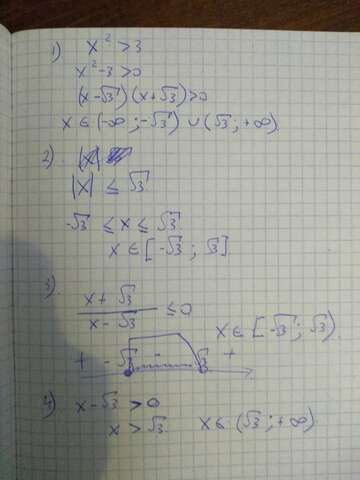 1) x² > 3
x² - 3 > 0
(x - √3)(x + √3) > 0
x ∈ (-∞ ; -√3) ∪ (√3 ; +∞)
2) |x|
|x| ≤ √3
-√3 ≤ x ≤ √3
x ∈ [-√3 ; √3]
3) (x + √3)/(x - √3) ≤ 0
x ∈ [-√3 ; √3)
+ -√3 - √3 +
4) x - √3 > 0
x > √3 x ∈ (√3 ; +∞)